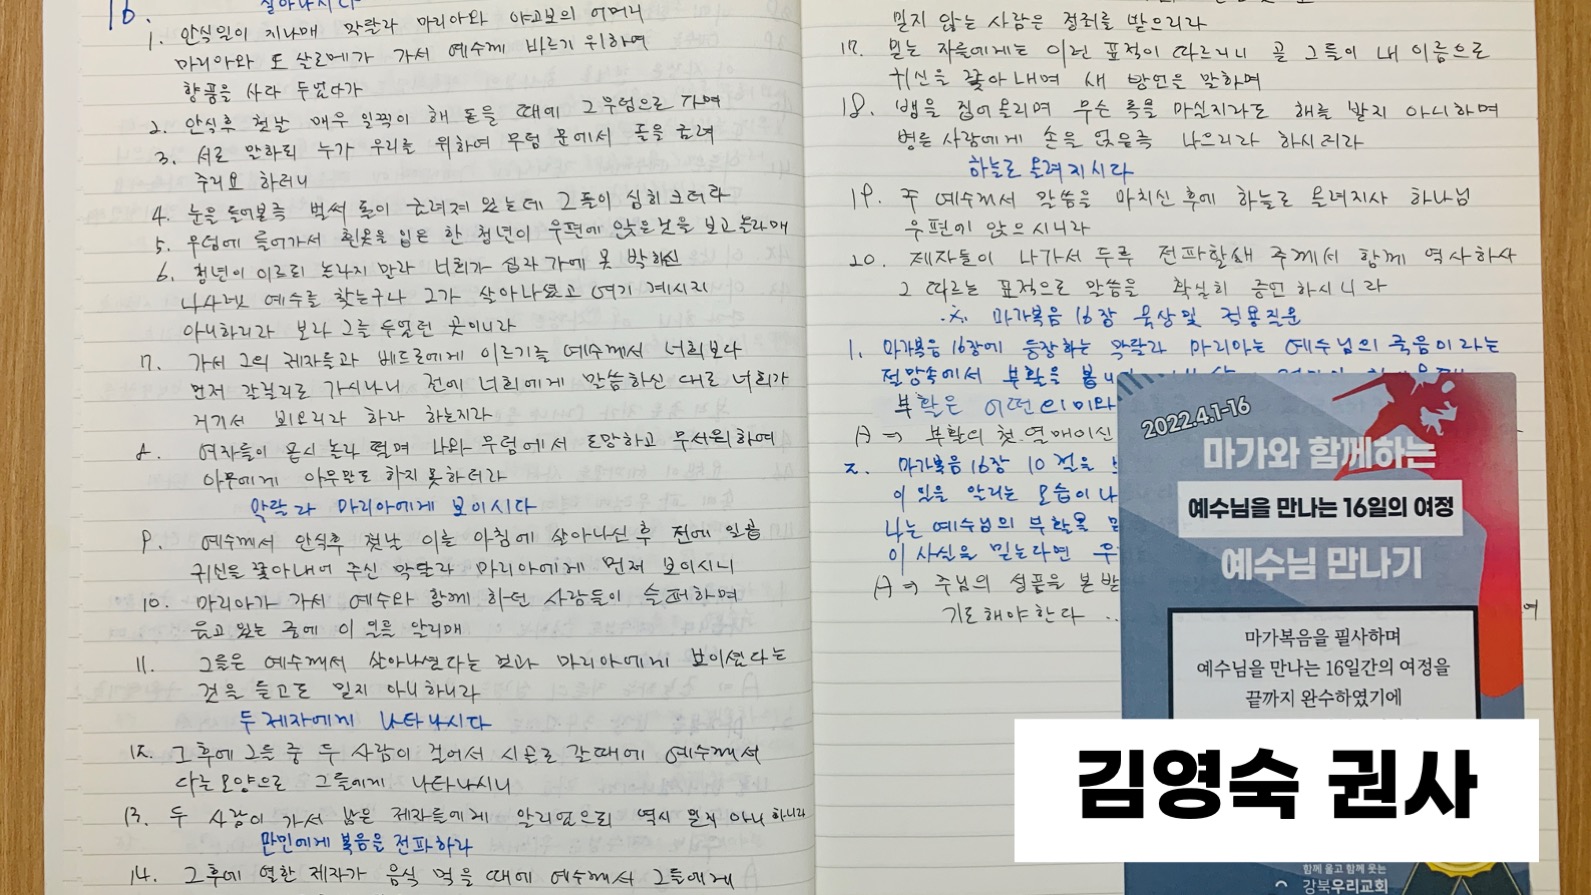 16. 살아나시다
1. 안식일이 지나매 막달라 마리아와 야고보의 어머니
마리아와 또 살로메가 가서 예수께 바르기 위하여
향품을 사다 두었다가
2. 안식후 첫날 매우 일찍이 해 돋을 때에 그 무덤으로 가며
3. 서로 말하되 누가 우리를 위하여 무덤 문에서 돌을 굴려
주리요 하더니
4. 눈을 들어본즉 벌써 돌이 굴려져 있는데 그 돌이 심히 크더라
5. 무덤에 들어가서 흰옷을 입은 한 청년이 우편에 앉은것을 보고 놀라매
6. 청년이 이르되 놀라지 말라 너희가 십자가에 못 박히신
나사렛 예수를 찾는구나 그가 살아나셨고 여기 계시지
아니하니라 보라 그를 두었던 곳이니라
7. 가서 그의 제자들과 베드로에게 이르기를 예수께서 너희보다
먼저 갈릴리로 가시나니 전에 너희에게 말씀하신 대로 너희가
거기서 뵈오리라 하라 하는지라
8. 여자들이 몹시 놀라 떨며 나와 무덤에서 도망하고 무서워하여
아무에게 아무말도 하지 못하더라
막달라 마리아에게 보이시다
9. 예수께서 안식후 첫날 이른 아침에 살아나신 후 전에 일곱
귀신을 쫓아내어 주신 막달라 마리아에게 먼저 보이시니
10. 마리아가 가서 예수와 함께 하던 사람들이 슬퍼하며
울고 있는 중에 이 일을 알리매
11. 그들은 예수께서 살아나셨다는 것과 마리아에게 보이셨다는
것을 듣고도 믿지 아니하니라
두 제자에게 나타나시다
12. 그 후에 그들 중 두 사람이 걸어서 시골로 갈때에 예수께서
다른 모양으로 그들에게 나타나시니
13. 두 사람이 가서 남은 제자들에게 알리었으되 역시 믿지 아니 하니라
만민에게 복음을 전파하라
14. 그후에 열한 제자가 음식 먹을 때에 예수께서 그들에게
믿지 않는 사람은 정죄를 받으리라
17. 믿는 자들에게는 이런 표적이 따르리니 곧 그들이 내 이름으로
귀신을 쫓아내며 새 방언을 말하며
18. 뱀을 집어올리며 무슨 독을 마실지라도 해를 받지 아니하며
병든 사람에게 손을 얹은즉 나으리라 하시더라
하늘로 올려지시다
19. 주 예수께서 말씀을 마치신 후에 하늘로 올려지사 하나님
우편에 앉으시니라
20. 제자들이 나가서 두루 전파할새 주께서 함께 역사하사
그 따르는 표적으로 말씀을 확실히 증언 하시니라
※ 마가복음 16장 묵상 및 적용질문
1. 마가복음 16장에 등장하는 막달라 마리아는 예수님의 죽음이라는
절망속에서 부활을
부활은 어떤 의미와
A ⇒ 부활의 첫 열매이신
2. 마가복음 16장 10절을
이 일을 알리는 모습이 나
나는 예수님의 부활을
이 사실을 믿는다면
A ⇒ 주님의 성품을 본 받
기도해야 한다 ..
여
2022.4.1-16
마가와 함께하는
예수님을 만나는 16일의 여정
예수님 만나기
마가복음을 필사하며
예수님을 만나는 16일간의 여정을
끝까지 완수하였기에
김영숙 권사
함께 울고 함께 웃는
강북우리교회